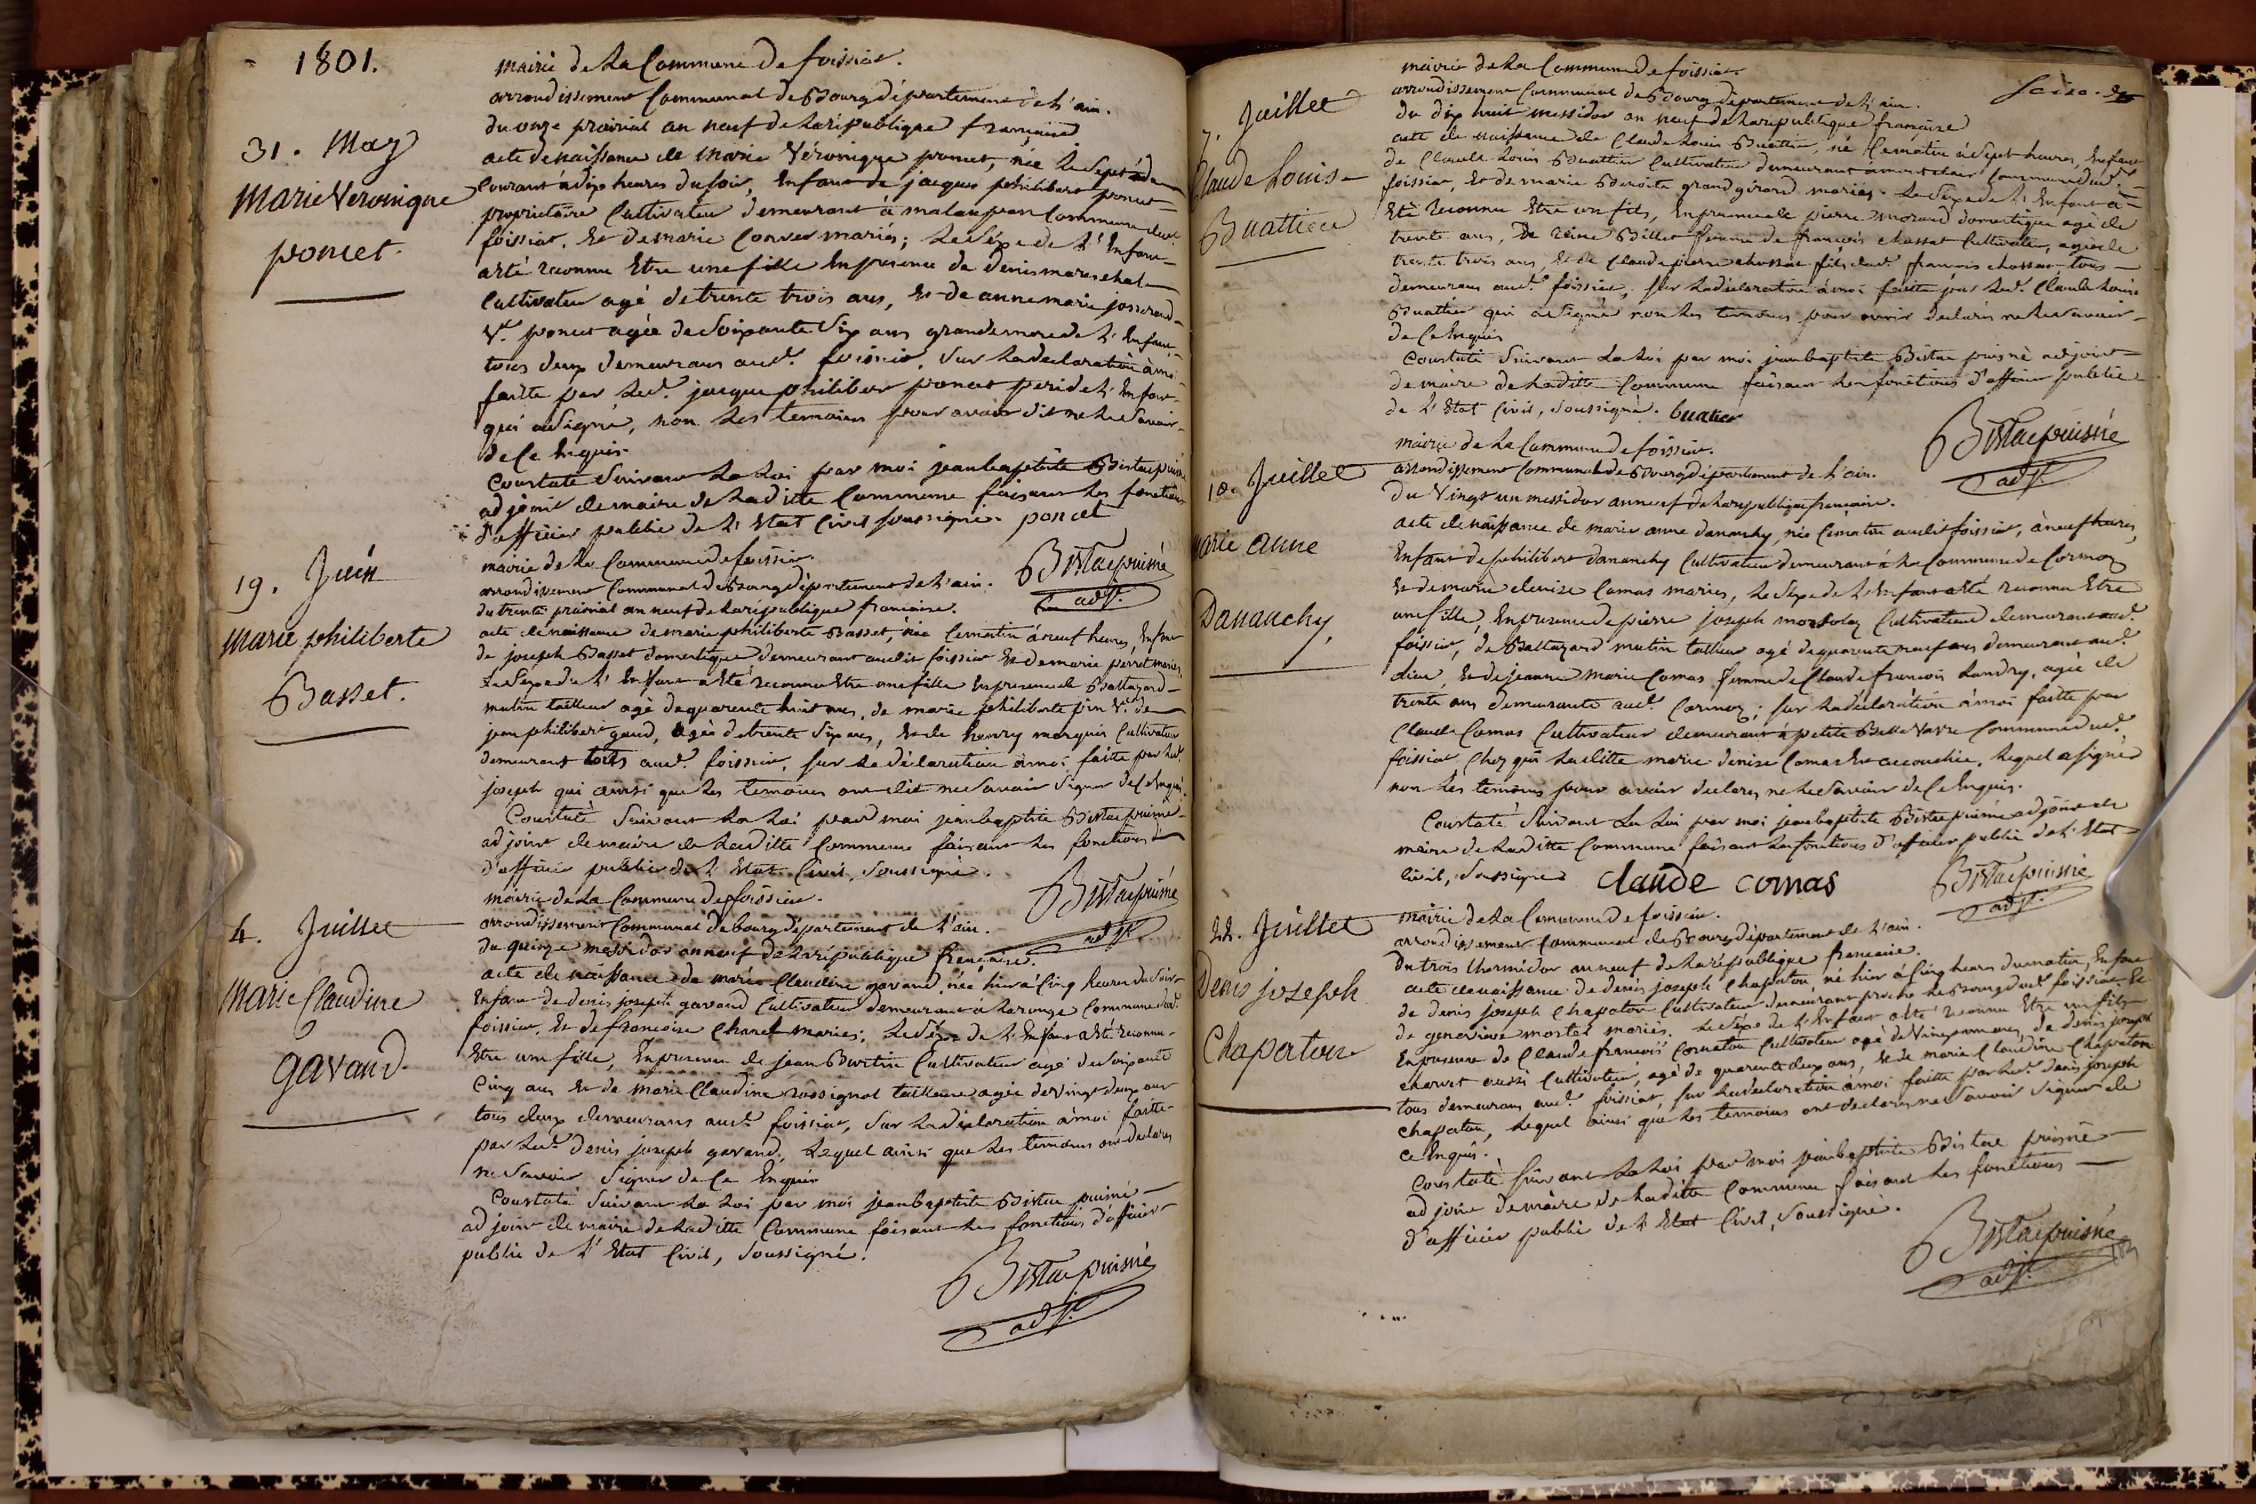 1801.
mairie de La Commune de foissiat.
arrondissement Communal de Bourg département de L'ain.
du onze prairial an neuf de La république francaise
31. May
Marie Veronique
poncet.
acte de naissance de Marie Véronique poncet, née Le sept du
Courant à dix heures du soir, Enfant de jacques philibert poncet
propriétaire Cultivateur demeurant à Commune dud.
foissiat, Et de marie Convers mariés; Le Séxe de L'Enfant
a été reconnu Etre une fille En presence de denis mareschal
Cultivateur agé de trente trois ans, Et de anne marie josserand
Ve. poncet agée de Soixante Six ans grande mere de L'Enfant,
tous deux demeurans aud. foissiat, Sur La declaration à moi
faitte par Led. jacque philibert poncet peré de L'Enfant
qui a Signé, non Les temoins pour avoir dit ne Le Savoir
de Ce Enquis.
Constaté Suivant La Loi par moi jean baptiste Bistac puisné
adjoint de maire de Laditte Commune faisant Les fonctions
d'officier public de L'Etat Civil soussigné. poncet
Bistac puisné
adjt.
19. Juin
Marie philiberte
Basset.
mairie de La Commune de foissiat.
arrondissement Communal de Bourg département de L'ain.
du trente prairial an neuf de La république francaise.
acte de naissance de marie philiberte Basset, née Cematin à neuf heures, Enfant
de joseph Basset domestique demeurant audit foissiat Et de marie perret mariés,
Le Sexe de L'Enfant a Eté reconnu Etre une fille En presence de Baltazard
mutin tailleur agé de quarente huit ans, de marie philiberte pin Ve. de
jean philibert gaud, agée de trente Six ans, Et de henry marquis Cultivateur
demeurant tous aud. foissiat, Sur La déclaration à moi faitte par Led.
joseph qui ainsi que Les temoins ont dit ne Savoir Signer de Ce Enquis.
Constaté Suivant La Loi par moi jean baptiste Bistac puisné
adjoint de maire de Laditte Commune faisant Les fonctions
d'officier public de L'Etat Civil, Soussigné.
Bistac puisné
adjt.
4. Juillet
Marie Claudine
gavand
mairie de La Commune de foissiat.
arrondissement Communal de bourg département de L'ain.
du quinze messidor an neuf de La république francaise.
acte de naissance de marie Claudine gavand, née hier à Cinq heures du Soir
Enfant de denis joseph gavand Cultivateur demeurant à Commune dud.
foissiat, Et de francoise Charel mariés; Le Séxe de L'Enfant a Eté reconnu
Etre une fille, En presence de jean Burtin Cultivateur agé de soixante
Cinq ans Et de Marie Claudine rossignol tailleuse agée de Vingt deux ans
tous deux demeurans aud. foissiat, Sur La déclaration à moi faitte
par Led. denis joseph gavand, Lequel ainsi que Les temoins ont declaré
ne Savoir Signer de Ce Enquis
Constaté Suivant La Loi par moi jean baptiste Bistac puisné
adjoint de maire de Laditte Commune faisant Les fonctions d'officier
public de L'Etat Civil, Soussigné.
Bistac puisné
adjt.
7. Juillet
Claude Louis
Buattier
mairie de La Commune de foissiat.
arrondissement Communal de Bourg département de L'ain.
du dix huit messidor an neuf de La republique francaise
acte de naissance de Claude Louis Buattier, né Cematin à Sept heures, Enfant
de Claude Louis Buattier Cultivateur demeurant Commune dud.
foissiat, Et de marie Benoite grandgirard mariés. Le Séxe de L'Enfant a
Eté reconnu Etre un fils, En presence de pierre morand domestique agé de
trente ans, De reine Billet femme de francois chossat Cultivateur, agée de
trente trois ans, Et de Claude pierre chossat fils dud. francois chossat tous
demeurans aud. foissiat, Sur La declaration à moi faitte par Led. Claude Louis
Buattier qui a Signé non Les temoins pour avoir declaré ne Le Savoir
de Ce Enquis
Constaté Suivant La Loi par moi jean baptiste Bistac puisné adjoint
de maire de Laditte Commune faisant Les fonctions d'officier public
de L'Etat Civil, Soussigné. buatier
Bistac puisné
adjt.
18. Juillet
Marie Anne
Dananchy,
mairie de La Commune de foissiat.
arrondissement Communal de Bourg département de L'ain.
du Vingt un messidor an neuf de La republique francaise.
acte de naissance de marie anne dananchy, née Cematin audit foissiat, à neuf heures,
Enfant de philibert dananchy Cultivateur demeurant à La Commune de Cormoz
Et de marie denise Comas mariés, Le Séxe de L'Enfant a été reconnu Etre
une fille, En presence de pierre joseph Cultivateur demeurant aud.
foissiat, de Baltazard mutin tailleur agé de quarente neuf ans demeurant aud.
Lieu, Et de jeanne Marie Comas femme de Claude francois Landry, agée de
trente ans demeurante aud. Cormoz; Sur La déclaration à moi faitte par
Claude Comas Cultivateur demeurant à petite Bellevavre Commune dud.
foissiat Chez qui Laditte marie denise Comas Est accouchée, Lequel a signé
non Les temoins pour avoir declaré ne Le Savoir de Ce Enquis.
Constaté Suivant La Loi par moi jean baptiste Bistac puisné adjoint de
maire de Laditte Commune faisant Les fonctions d'officier public de L'Etat
Civil, Soussigné claude comas
Bistac puisné
adjt.
22. Juillet
Denis joseph
Chapaton
mairie de La Commune de foissiat.
arrondissement Communal de Bourg département de L'ain.
du trois thermidor an neuf de La république francaise.
acte de naissance de denis joseph Chapaton, né hier à Cinq heures du matin, Enfant
de denis joseph Chapaton Cultivateur demeurant proche Le Bourg dud. foissiat, Et
de genevieve mortel mariés. Le Séxe de L'Enfant a Eté reconnu Etre un fils
En presence de Claude francois Cornaton Cultivateur agé de Vingt un ans, de denis joseph
charvet aussi Cultivateur, agé de quarente deux ans, Et de marie Claudine Chapaton
tous demeurans aud. foissiat, Sur La declaration à moi faitte par Led. denis joseph
chapaton, Lequel ainsi que Les temoins ont declaré ne Savoir Signer de
Ce Enquis.
Constaté Suivant La Loi par moi jean baptiste Bistac puisné
adjoint de maire de Laditte Commune faisant Les fonctions
d'officier public de L'Etat Civil, Soussigné.
Bistac puisné
adjt.